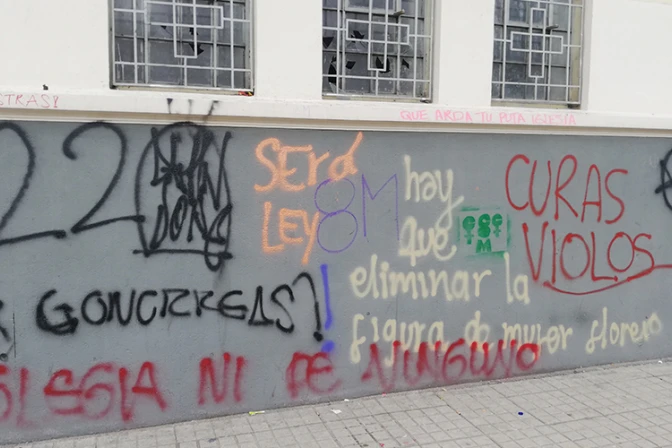 QUE ARDA TU PUTA IGLESIA
22
SERÁ
LEY
8M
hay
que
eliminar la
figura de mujer florero
8M
CURAS
VIOLOS
GONORREAS?!
IGLESIA NI DE NINGUNO